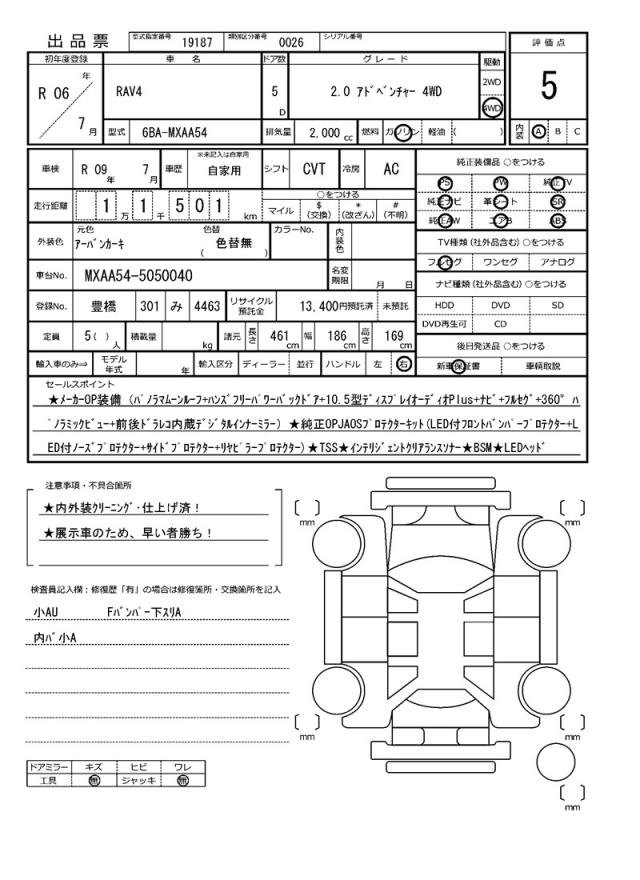 出品票 型式指定番号 19187 類別区分番号 0026 シリアル番号
初年度登録 車名 ドア数 グレード 駆動 評価点
R 06 年 7 月 RAV4 5 D 2.0 ｱﾄﾞﾍﾞﾝﾁｬｰ 4WD 2WD 4WD 5
型式 6BA-MXAA54 排気量 2,000 cc 燃料 ガソリン 軽油 ( ) 内装 A B C
車検 R 09 年 7 月 車歴 ※未記入は自家用 自家用 シフト CVT 冷房 AC 純正装備品 ○をつける
PS PW 純正TV
走行距離 1 万 1 千 5 0 1 km ○をつける マイル $ (交換) * (改ざん) # (不明) 純正ナビ 革シート SR
純正AW エアB ABS
外装色 元色 ｱｰﾊﾞﾝｶｰｷ 色替 色替無 ( ) カラーNo. 内装色 TV種類 (社外品含む) ○をつける
フルセグ ワンセグ アナログ
車台No. MXAA54-5050040 名変期限 月 日 ナビ種類 (社外品含む) ○をつける
登録No. 豊橋 301 み 4463 リサイクル預託金 13,400円預託済 未預託 HDD DVD SD
DVD再生可 CD
定員 5 ( ) 人 積載量 kg 諸元 長さ 461 cm 幅 186 cm 高さ 169 cm 後日発送品 ○をつける
輸入車のみ⇒ モデル年式 年 輸入区分 ディーラー 並行 ハンドル 左 右 新車保証書 車輌取説
セールスポイント
★ﾒｰｶｰOP装備 (ﾊﾟﾉﾗﾏﾑｰﾝﾙｰﾌ+ﾊﾝｽﾞﾌﾘｰﾊﾟﾜｰﾊﾞｯｸﾄﾞｱ+10.5型ﾃﾞｨｽﾌﾟﾚｲｵｰﾃﾞｨｵPlus+ﾅﾋﾞ+ﾌﾙｾｸﾞ+360° ﾊ
ﾟﾉﾗﾐｯｸﾋﾞｭｰ+前後ﾄﾞﾗﾚｺ内蔵ﾃﾞｼﾞﾀﾙｲﾝﾅｰﾐﾗｰ) ★純正OPJAOSﾌﾟﾛﾃｸﾀｰｷｯﾄ(LED付ﾌﾛﾝﾄﾊﾞﾝﾊﾟｰﾌﾟﾛﾃｸﾀｰ+L
ED付ﾉｰｽﾞﾌﾟﾛﾃｸﾀｰ+ｻｲﾄﾞﾌﾟﾛﾃｸﾀｰ+ﾘﾔﾋﾟﾗｰﾌﾟﾛﾃｸﾀｰ)★TSS★ｲﾝﾃﾘｼﾞｪﾝﾄｸﾘｱﾗﾝｽｿﾅｰ★BSM★LEDﾍｯﾄﾞ
注意事項・不具合箇所
★内外装ｸﾘｰﾆﾝｸﾞ･仕上げ済！
★展示車のため、早い者勝ち！
[ ] mm [ ] mm
検査員記入欄：修復歴「有」の場合は修復箇所・交換箇所を記入
小AU Fﾊﾞﾝﾊﾟｰ下ｽﾘA
内ﾊﾞ小A
[ ] mm [ ] mm
ドアミラー キズ ヒビ ワレ
工具 無 ジャッキ 無
[ ] mm